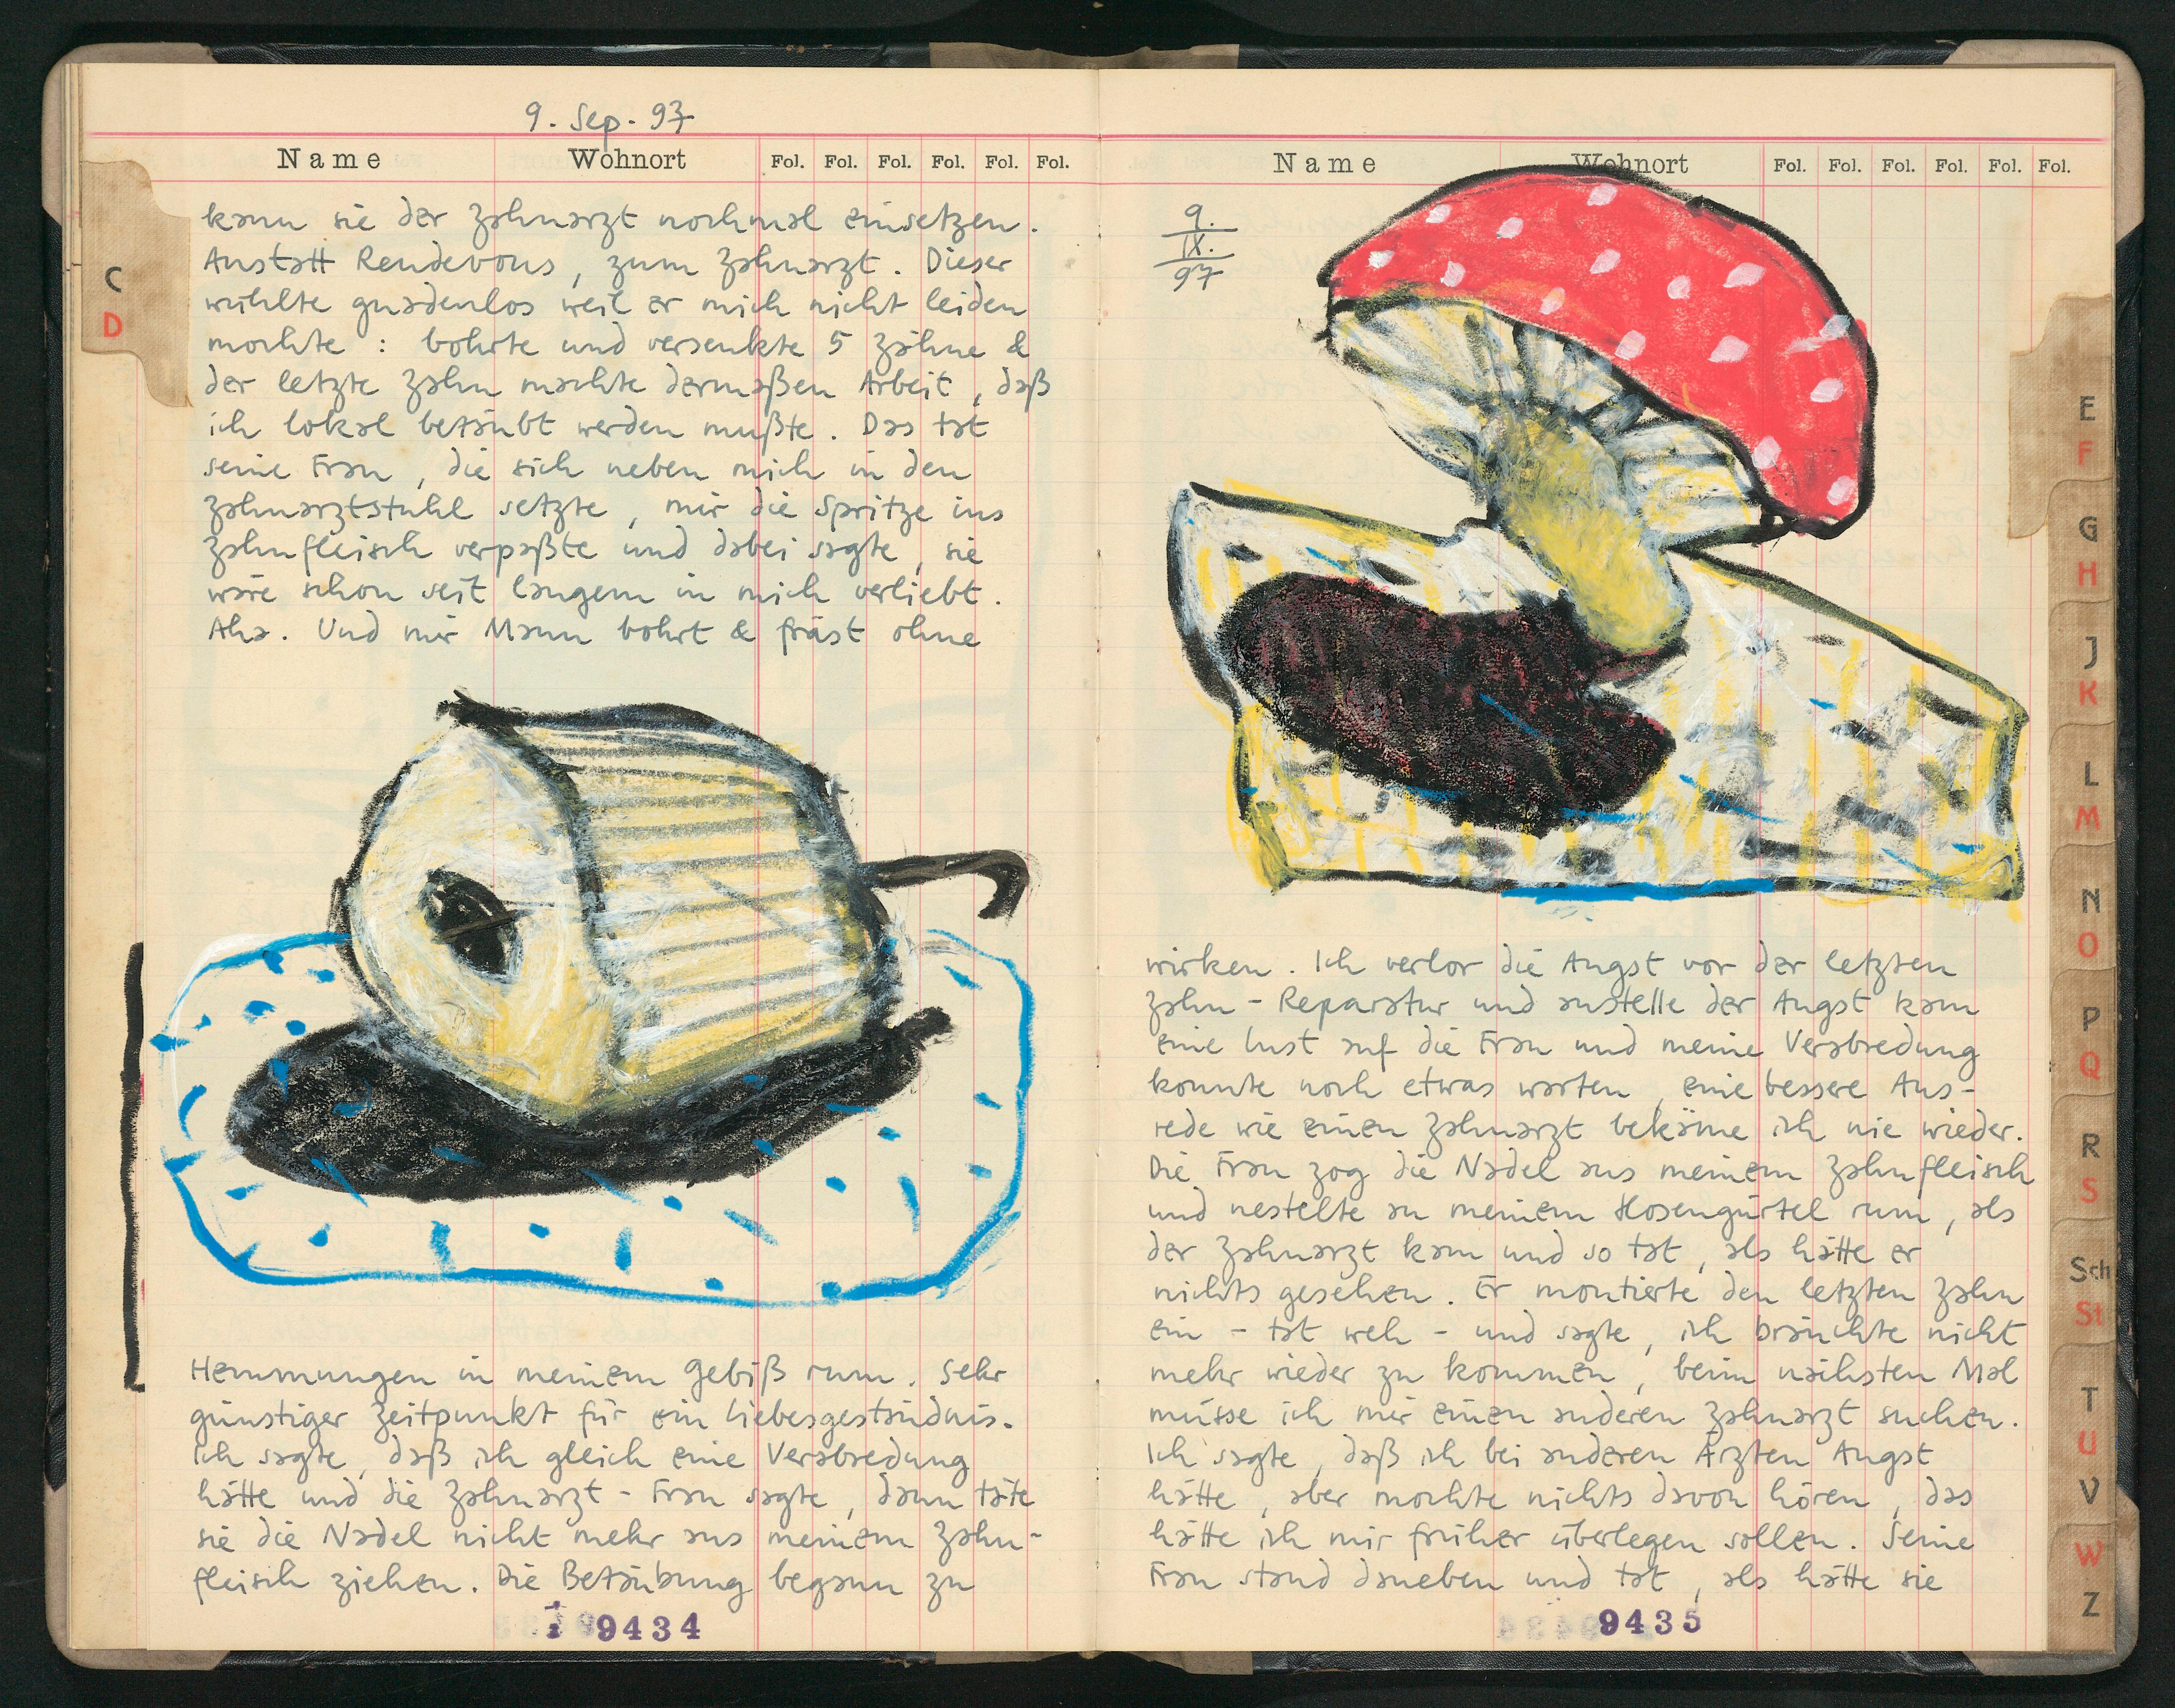 9. Sep. 97
Name Wohnort Fol. Fol. Fol. Fol. Fol. Fol.
C
D
kann sie der Zahnarzt nochmal einsetzen.
Anstatt Rendevous, zum Zahnarzt. Dieser
wühlte gnadenlos weil er mich nicht leiden
mochte : bohrte und versenkte 5 Zähne &
der letzte Zahn machte dermaßen Arbeit, daß
ich lokal betäubt werden mußte. Das tat
seine Frau, die sich neben mich in den
Zahnarztstuhl setzte, mir die Spritze ins
Zahnfleisch verpaßte und dabei sagte, sie
wäre schon seit langem in mich verliebt.
Aha. Und mir Mann bohrt & fräst ohne
Hemmungen in meinem Gebiß rum. Sehr
günstiger Zeitpunkt für ein Liebesgeständnis.
Ich sagte, daß ich gleich eine Verabredung
hätte und die Zahnarzt-Frau sagte, dann täte
sie die Nadel nicht mehr aus meinem Zahn-
fleisch ziehen. Die Betäubung begann zu
9434
Name Wohnort Fol. Fol. Fol. Fol. Fol. Fol.
9.
IX.
97
wirken. Ich verlor die Angst vor der letzten
Zahn-Reparatur und anstelle der Angst kam
eine Lust auf die Frau und meine Verabredung
konnte noch etwas warten, eine bessere Aus-
rede wie einen Zahnarzt bekäme ich nie wieder.
Die Frau zog die Nadel aus meinem Zahnfleisch
und nestelte an meinem Hosengürtel rum, als
der Zahnarzt kam und so tat, als hätte er
nichts gesehen. Er montierte den letzten Zahn
ein - tat weh - und sagte, ich bräuchte nicht
mehr wieder zu kommen, beim nächsten Mal
müsse ich mir einen anderen Zahnarzt suchen.
Ich sagte, daß ich bei anderen Ärzten Angst
hätte, aber mochte nichts davon hören, das
hätte ich mir früher überlegen sollen. Seine
Frau stand daneben und tat, als hätte sie
9435
E
F
G
H
J
K
L
M
N
O
P
Q
R
S
Sch
St
T
U
V
W
Z